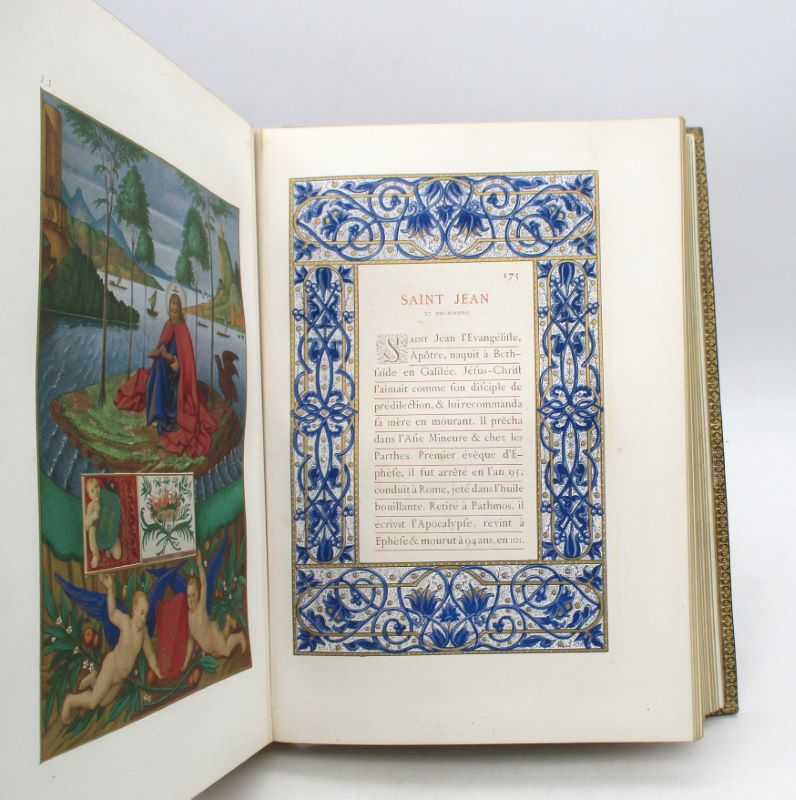 JJ
175
SAINT JEAN
27 DECEMBRE
SAINT Jean l'Evangéliſte,
Apôtre, naquit à Beth-
ſaïde en Galilée. Jéſus-Chriſt
l'aimait comme ſon diſciple de
prédilection, & lui recommanda
ſa mère en mourant. Il prêcha
dans l'Aſie Mineure & chez les
Parthes. Premier évêque d'E-
phèſe, il fut arrêté en l'an 95,
conduit à Rome, jeté dans l'huile
bouillante. Retiré à Pathmos, il
écrivit l'Apocalypſe, revint à
Ephèſe & mourut à 94 ans, en 101.